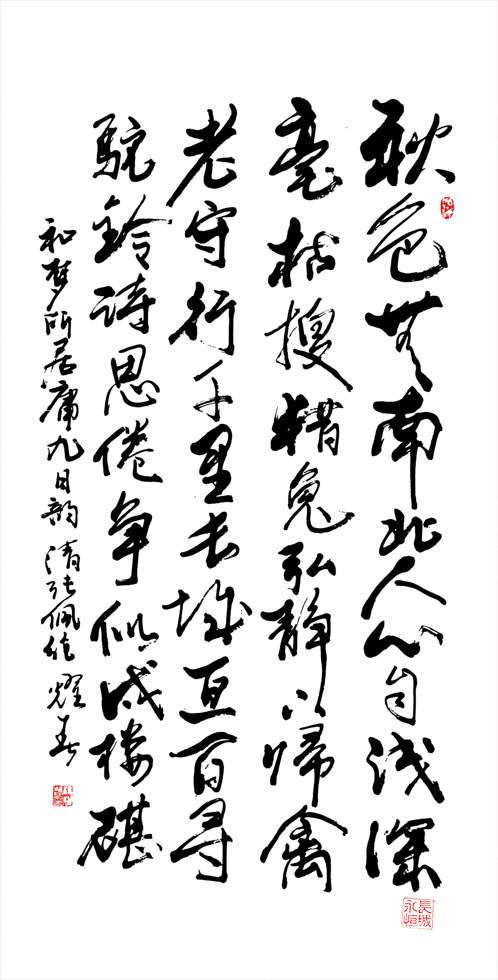 秋色無南北人心自浅深
毫枯搜兔弘静歸禽
老守行千里长城亘百寻
駝鈴诗思倦争似戍楼碪
和梦所居庸九日韵 清张佩纶 耀春
長城永恒